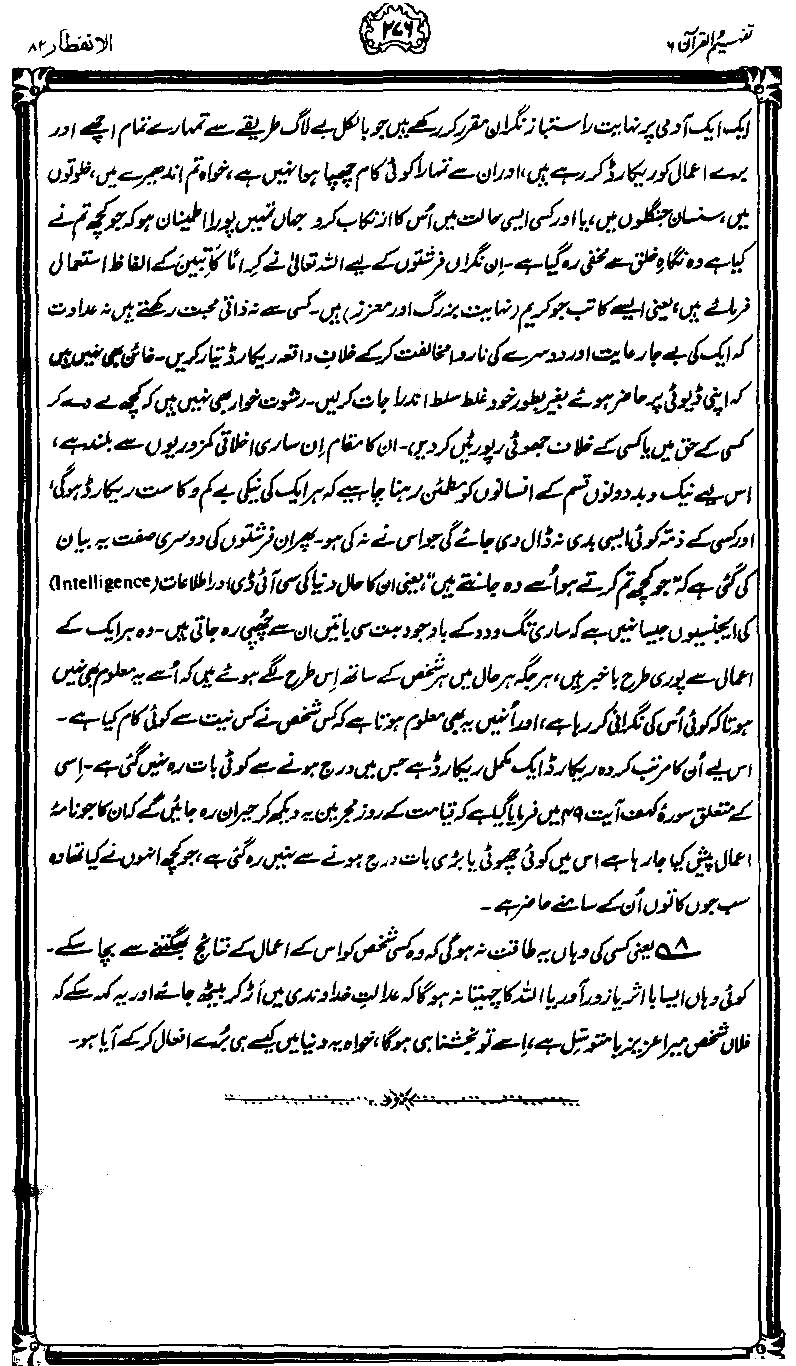 تفہیم القرآن ۶
۲۷۶
الانفطار ۸۲
ایک ایک آدمی پر نہایت راستباز نگران مقرر کر رکھے ہیں جو بالکل بے لاگ طریقے سے تمہارے تمام اچھے اور
برے اعمال کو ریکارڈ کر رہے ہیں، اور ان سے تمہارا کوئی کام چھپا ہوا نہیں ہے، خواہ تم اندھیرے میں، خلوتوں
میں، سنسان جنگلوں میں، یا اور کسی ایسی حالت میں اُس کا ارتکاب کرو جہاں تمہیں پورا اطمینان ہو کہ جو کچھ تم نے
کیا ہے وہ نگاہِ خلق سے مخفی رہ گیا ہے۔ اِن نگراں فرشتوں کے لیے اللہ تعالیٰ نے کِرَامًا کَاتِبِیْنَ کے الفاظ استعمال
فرمائے ہیں، یعنی ایسے کاتب جو کریم (نہایت بزرگ اور معزز) ہیں۔ کسی سے نہ ذاتی محبت رکھتے ہیں نہ عداوت
کہ ایک کی بے جا رعایت اور دوسرے کی ناروا مخالفت کر کے خلافِ واقعہ ریکارڈ تیار کریں۔ خائن بھی نہیں ہیں
کہ اپنی ڈیوٹی پر حاضر ہوئے بغیر بطور خود غلط سلط اندراجات کر لیں۔ رشوت خوار بھی نہیں ہیں کہ کچھ لے دے کر
کسی کے حق میں یا کسی کے خلاف جھوٹی رپورٹیں کر دیں۔ ان کا مقام اِن ساری اخلاقی کمزوریوں سے بلند ہے،
اس لیے نیک و بد دونوں قسم کے انسانوں کو مطمئن رہنا چاہیے کہ ہر ایک کی نیکی بے کم و کاست ریکارڈ ہوگی،
اور کسی کے ذمہ کوئی ایسی بدی نہ ڈال دی جائے گی جو اس نے نہ کی ہو۔ پھر ان فرشتوں کی دوسری صفت یہ بیان
کی گئی ہے کہ "جو کچھ تم کرتے ہو اُسے وہ جانتے ہیں"، یعنی ان کا حال دنیا کی سی آئی ڈی اور اطلاعات (Intelligence)
کی ایجنسیوں جیسا نہیں ہے کہ ساری تگ و دو کے باوجود بہت سی باتیں ان سے چُھپی رہ جاتی ہیں۔ وہ ہر ایک کے
اعمال سے پوری طرح باخبر ہیں، ہر جگہ ہر حال میں ہر شخص کے ساتھ اِس طرح لگے ہوئے ہیں کہ اُسے یہ معلوم بھی نہیں
ہوتا کہ کوئی اُس کی نگرانی کر رہا ہے، اور اُنہیں یہ بھی معلوم ہوتا ہے کہ کس شخص نے کس نیت سے کوئی کام کیا ہے۔
اس لیے اُن کا مرتب کردہ ریکارڈ ایک مکمل ریکارڈ ہے جس میں درج ہونے سے کوئی بات رہ نہیں گئی ہے۔ اِسی
کے متعلق سورۂ کہف آیت ۴۹ میں فرمایا گیا ہے کہ قیامت کے روز مجرمین یہ دیکھ کر حیران رہ جائیں گے کہ ان کا جو نامۂ
اعمال پیش کیا جا رہا ہے اس میں کوئی چھوٹی یا بڑی بات درج ہونے سے نہیں رہ گئی ہے، جو کچھ انہوں نے کیا تھا وہ
سب جوں کا توں اُن کے سامنے حاضر ہے۔
۸ یعنی کسی کی وہاں یہ طاقت نہ ہوگی کہ وہ کسی شخص کو اس کے اعمال کے نتائج بھگتنے سے بچا سکے۔
کوئی وہاں ایسا با اثر یا زور آور یا اللہ کا چہیتا نہ ہوگا کہ عدالتِ خداوندی میں اَڑ کر بیٹھ جائے اور یہ کہہ سکے کہ
فلاں شخص میرا عزیز یا متوسّل ہے، اِسے تو بخشنا ہی ہوگا، خواہ یہ دنیا میں کیسے ہی بُرے افعال کر کے آیا ہو۔